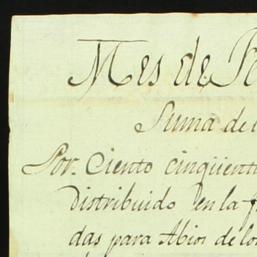 Mes de
Suma de
Por. Ciento cinqüent
distribuido en la f
das para Abios de lo